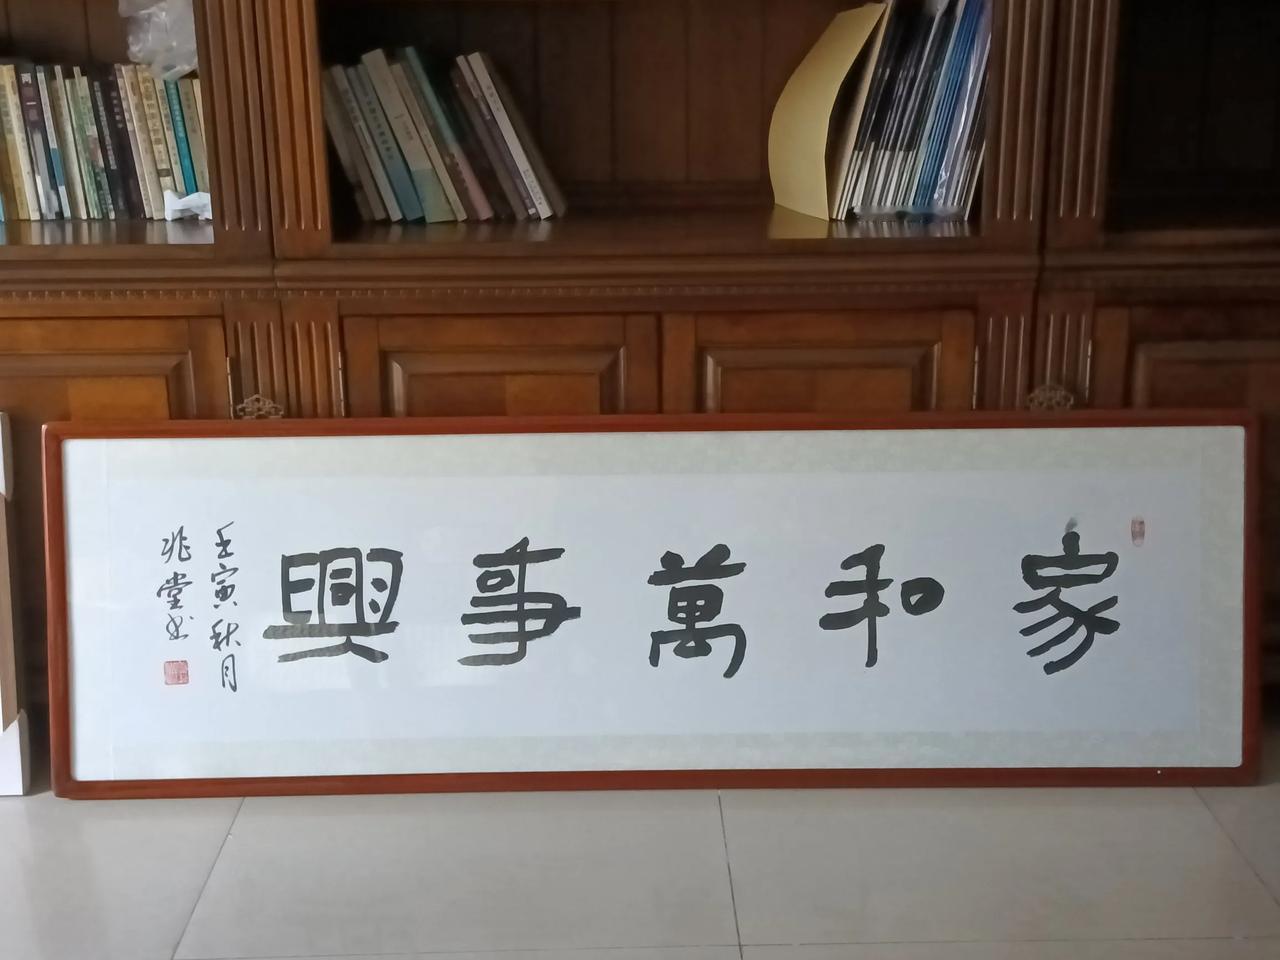 家和萬事興
壬寅秋月
兆堂书